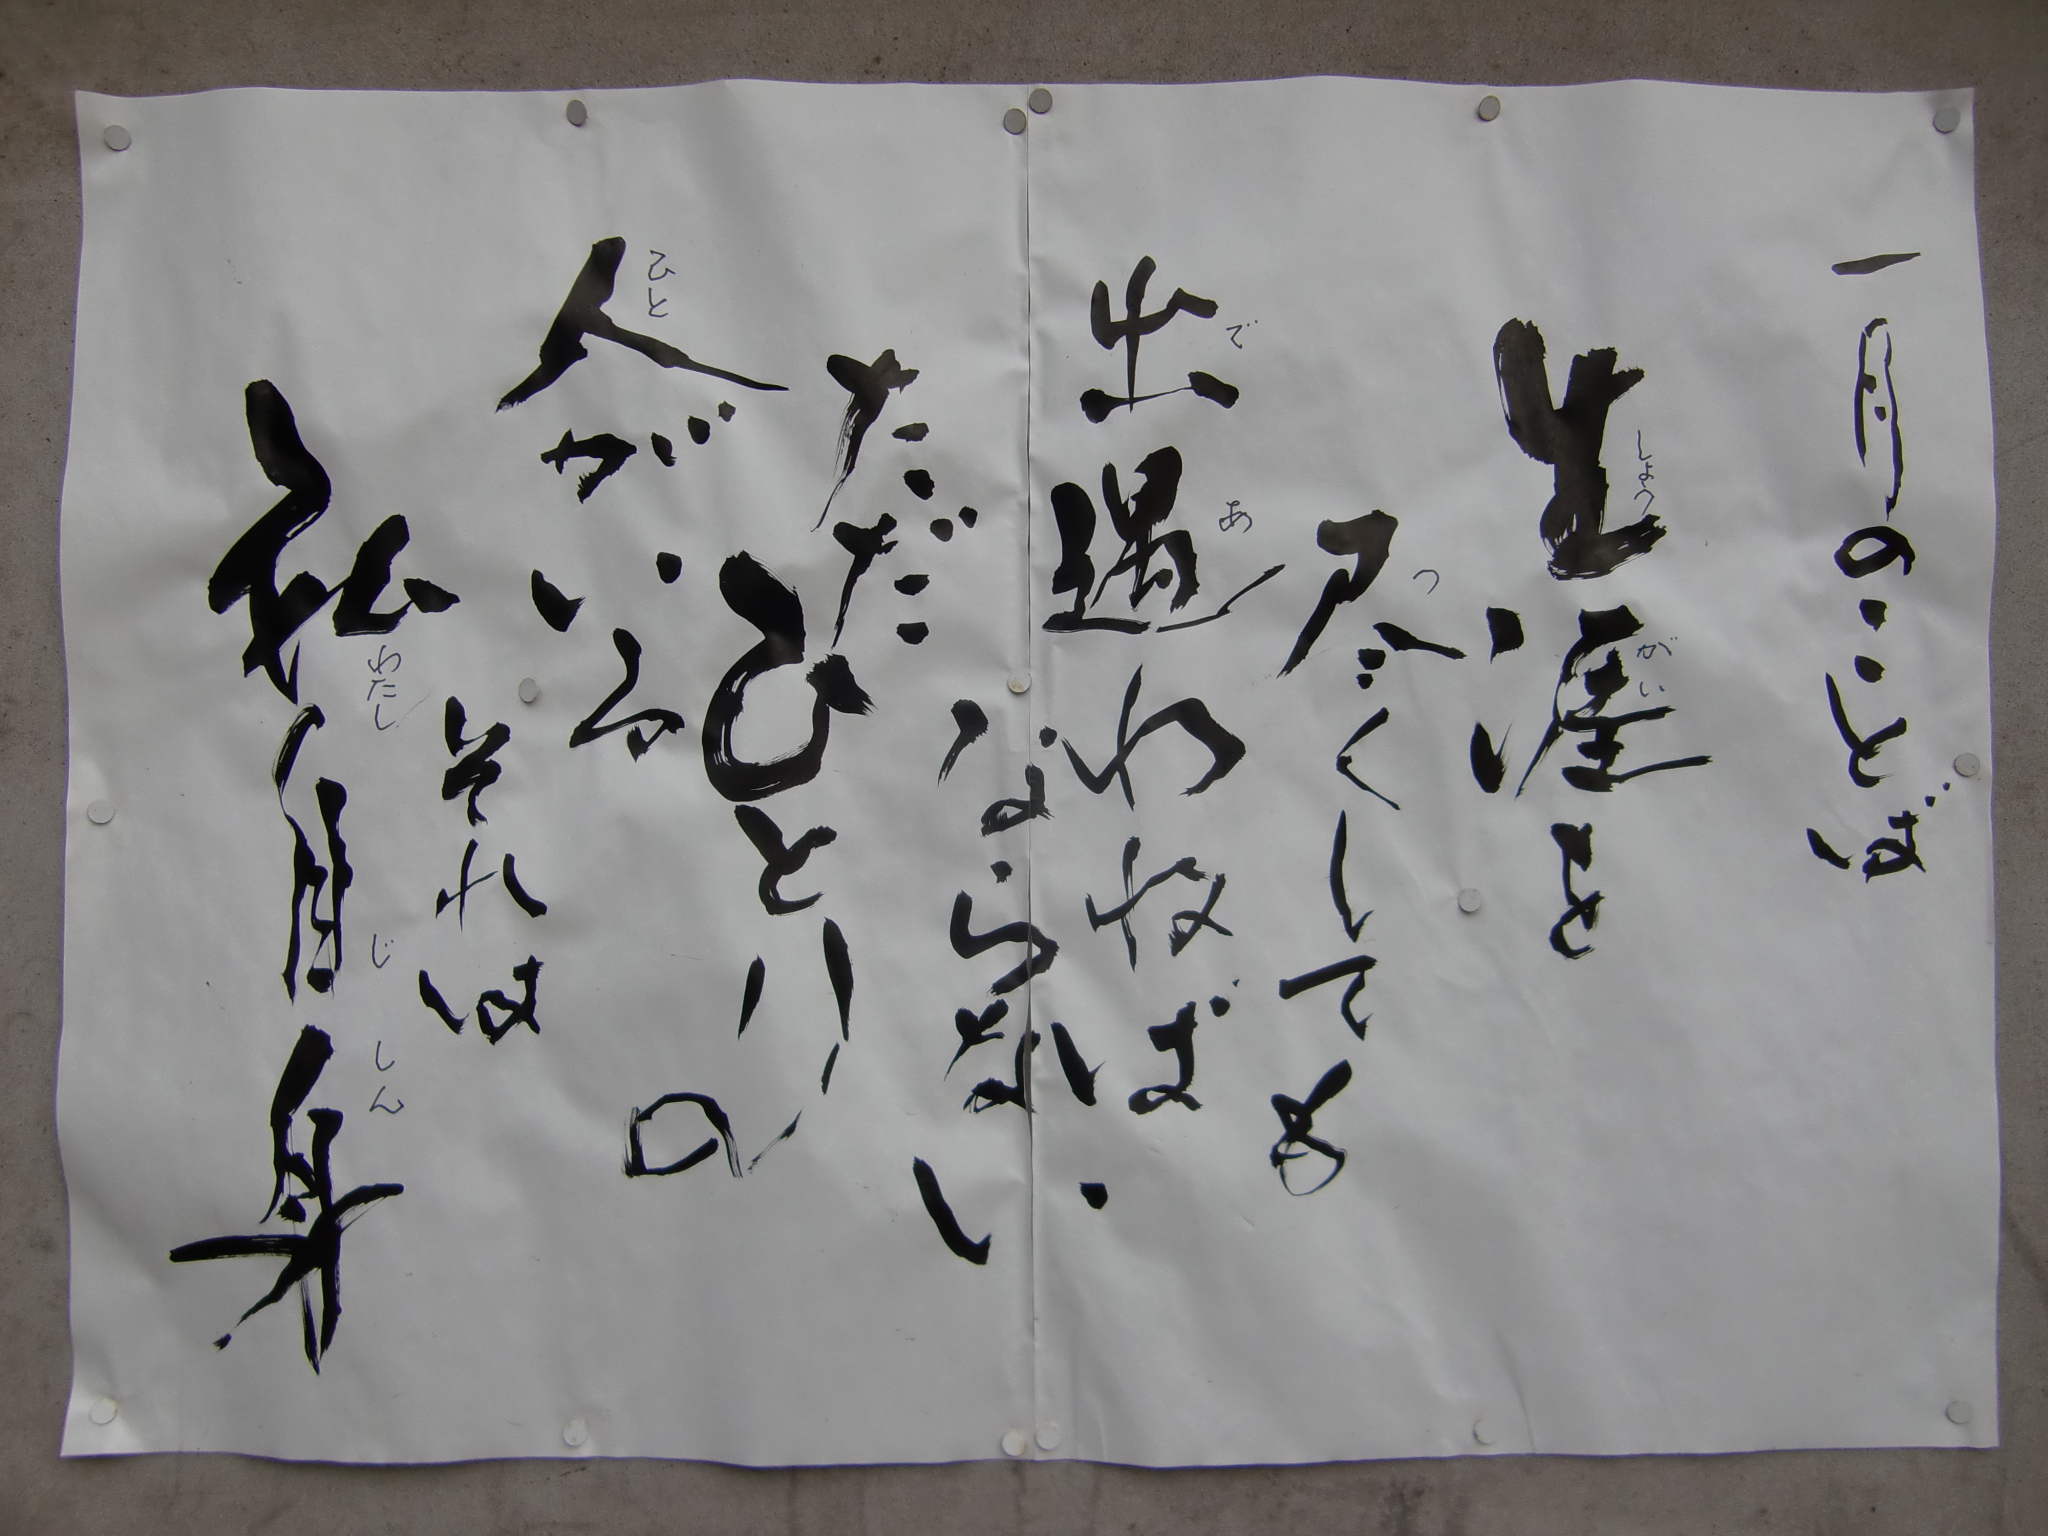 一月のことば
生涯を
尽くしても
出遇わねば
ならない
ただひとりの
人がいる
それは
私自身
しょう
がい
つ
で
あ
ひと
わたし
じ
しん